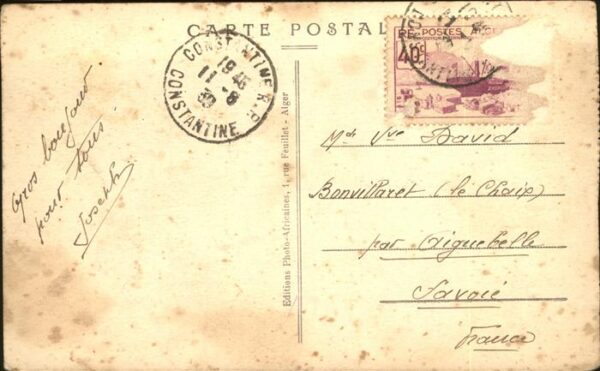 CARTE POSTAL
CONSTANTINE R.P.
19 45
11 - 8
39
CONSTANTINE
RF POSTES ALGE
40c
Gros bonjour
pour tous.
Joseph
Editions Photo-Africaines, 1, rue Feuillet - Alger
Vve David
Bonvillaret (le Chaix)
par Aiguebelle
Savoie
France